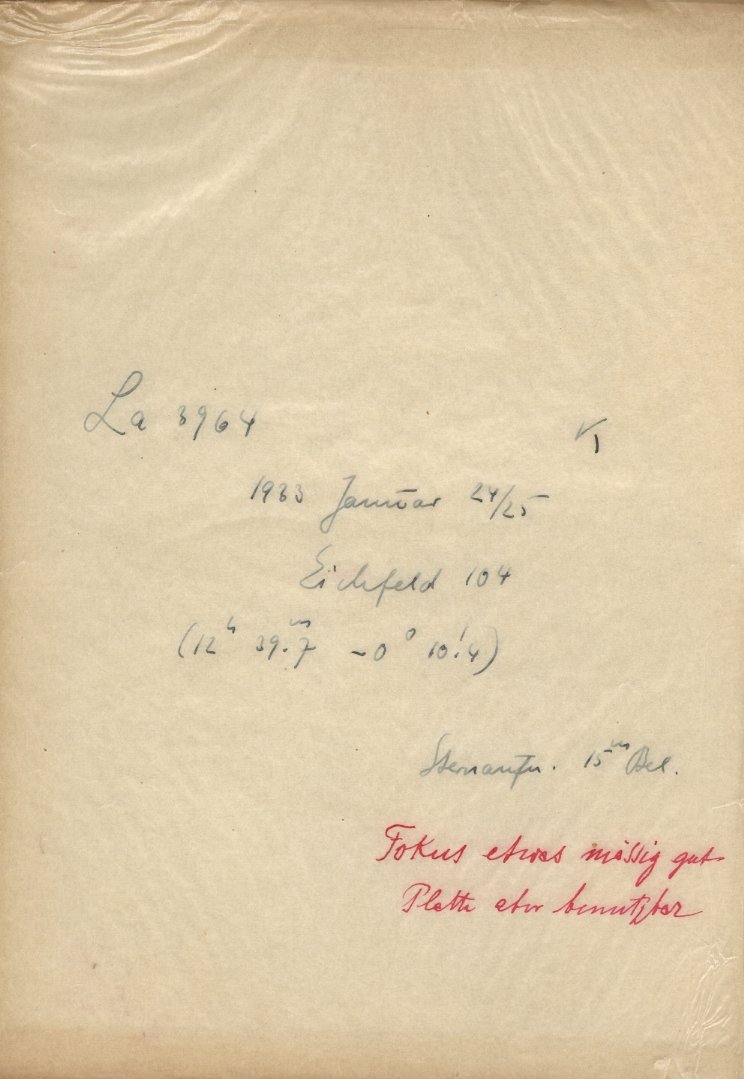 La 3964
1933 Januar 24/25
Eichfeld 104
(12ʰ 39ᵐ.7 -0° 10!4)
Sternaufn. 15ᵐ Bel.
Fokus etwas mässig gut
Platte aber benutzbar